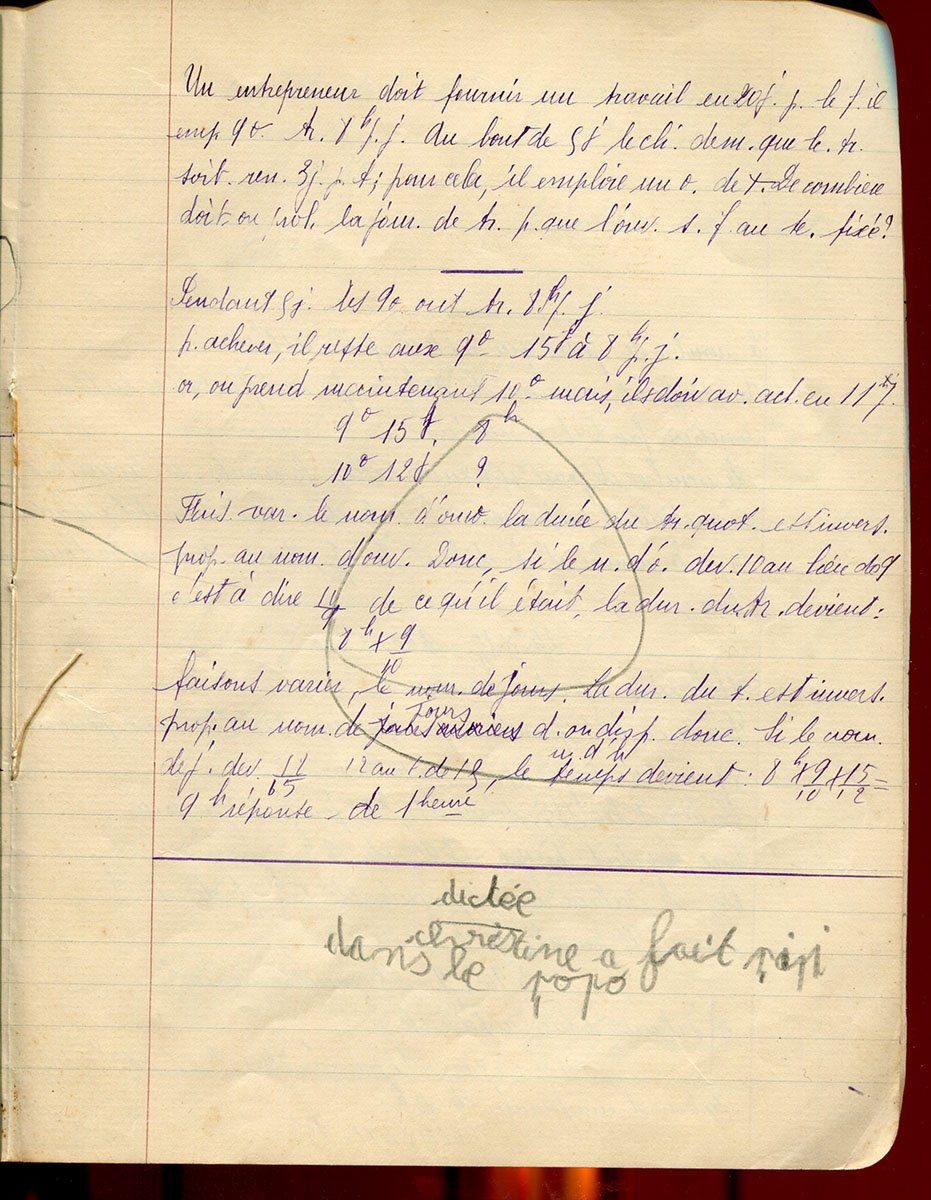 Un entrepreneur doit fournir un travail en 20j. p. le f. il
emp. 9 o. tr. 8 h p. j. Au bout de 5j le cli. dem. que le tr.
soit ren. 3j. p. t; pour cela, il emploie un o. de +. De combien
doit-on prol. la jour. de tr. p. que l'ouv. s. f. au te. fixé?
Pendant 5j. les 9o ont tr. 8h p. j.
p. achever, il reste aux 9o 15j à 8h p. j.
or, on prend maintenant 10o mais, ils doiv av. ach. en
9o 15j. 8h
10o 12j ?
Fais. var. le nom. d'ouv. la durée du tr. quot. est invers.
prop. au nom. d'ouv. Donc, si le n. d'o. dev. 10 au lieu de 9
c'est à dire de ce qu'il était, la dur. du tr. devient:
8h x 9/10
faisons varier, le nom. de jours. La dur. du t. est invers.
prop. au nom. de jours d. on disp. donc. Si le nom.
de j. dev. 12 au l. de 15, le n. d'h devient: 8h x 9/10 x 15/12 =
9h réponse - de 1 heure
dictée
christine a fait pipi
dans le popo